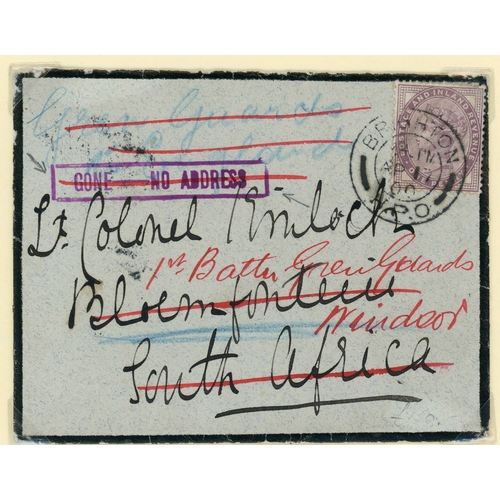 Gren Guards
GONE NO ADDRESS
Lt. Colonel Kinloch
1st Battn Gren Guards
Bloemfontein
Windsor
South Africa
POSTAGE AND INLAND REVENUE
BRIGHTON
N.P.O.